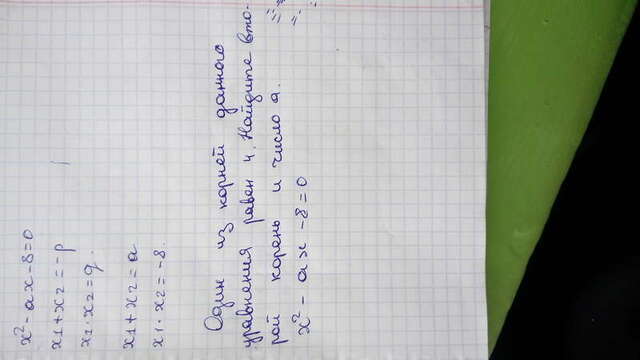 x² - ax - 8 = 0
x1 + x2 = -p
x1 · x2 = q.
x1 + x2 = a
x1 · x2 = -8.
Один из корней данного
уравнения равен 4. Найдите вто-
рой корень и число a.
x² - ax - 8 = 0